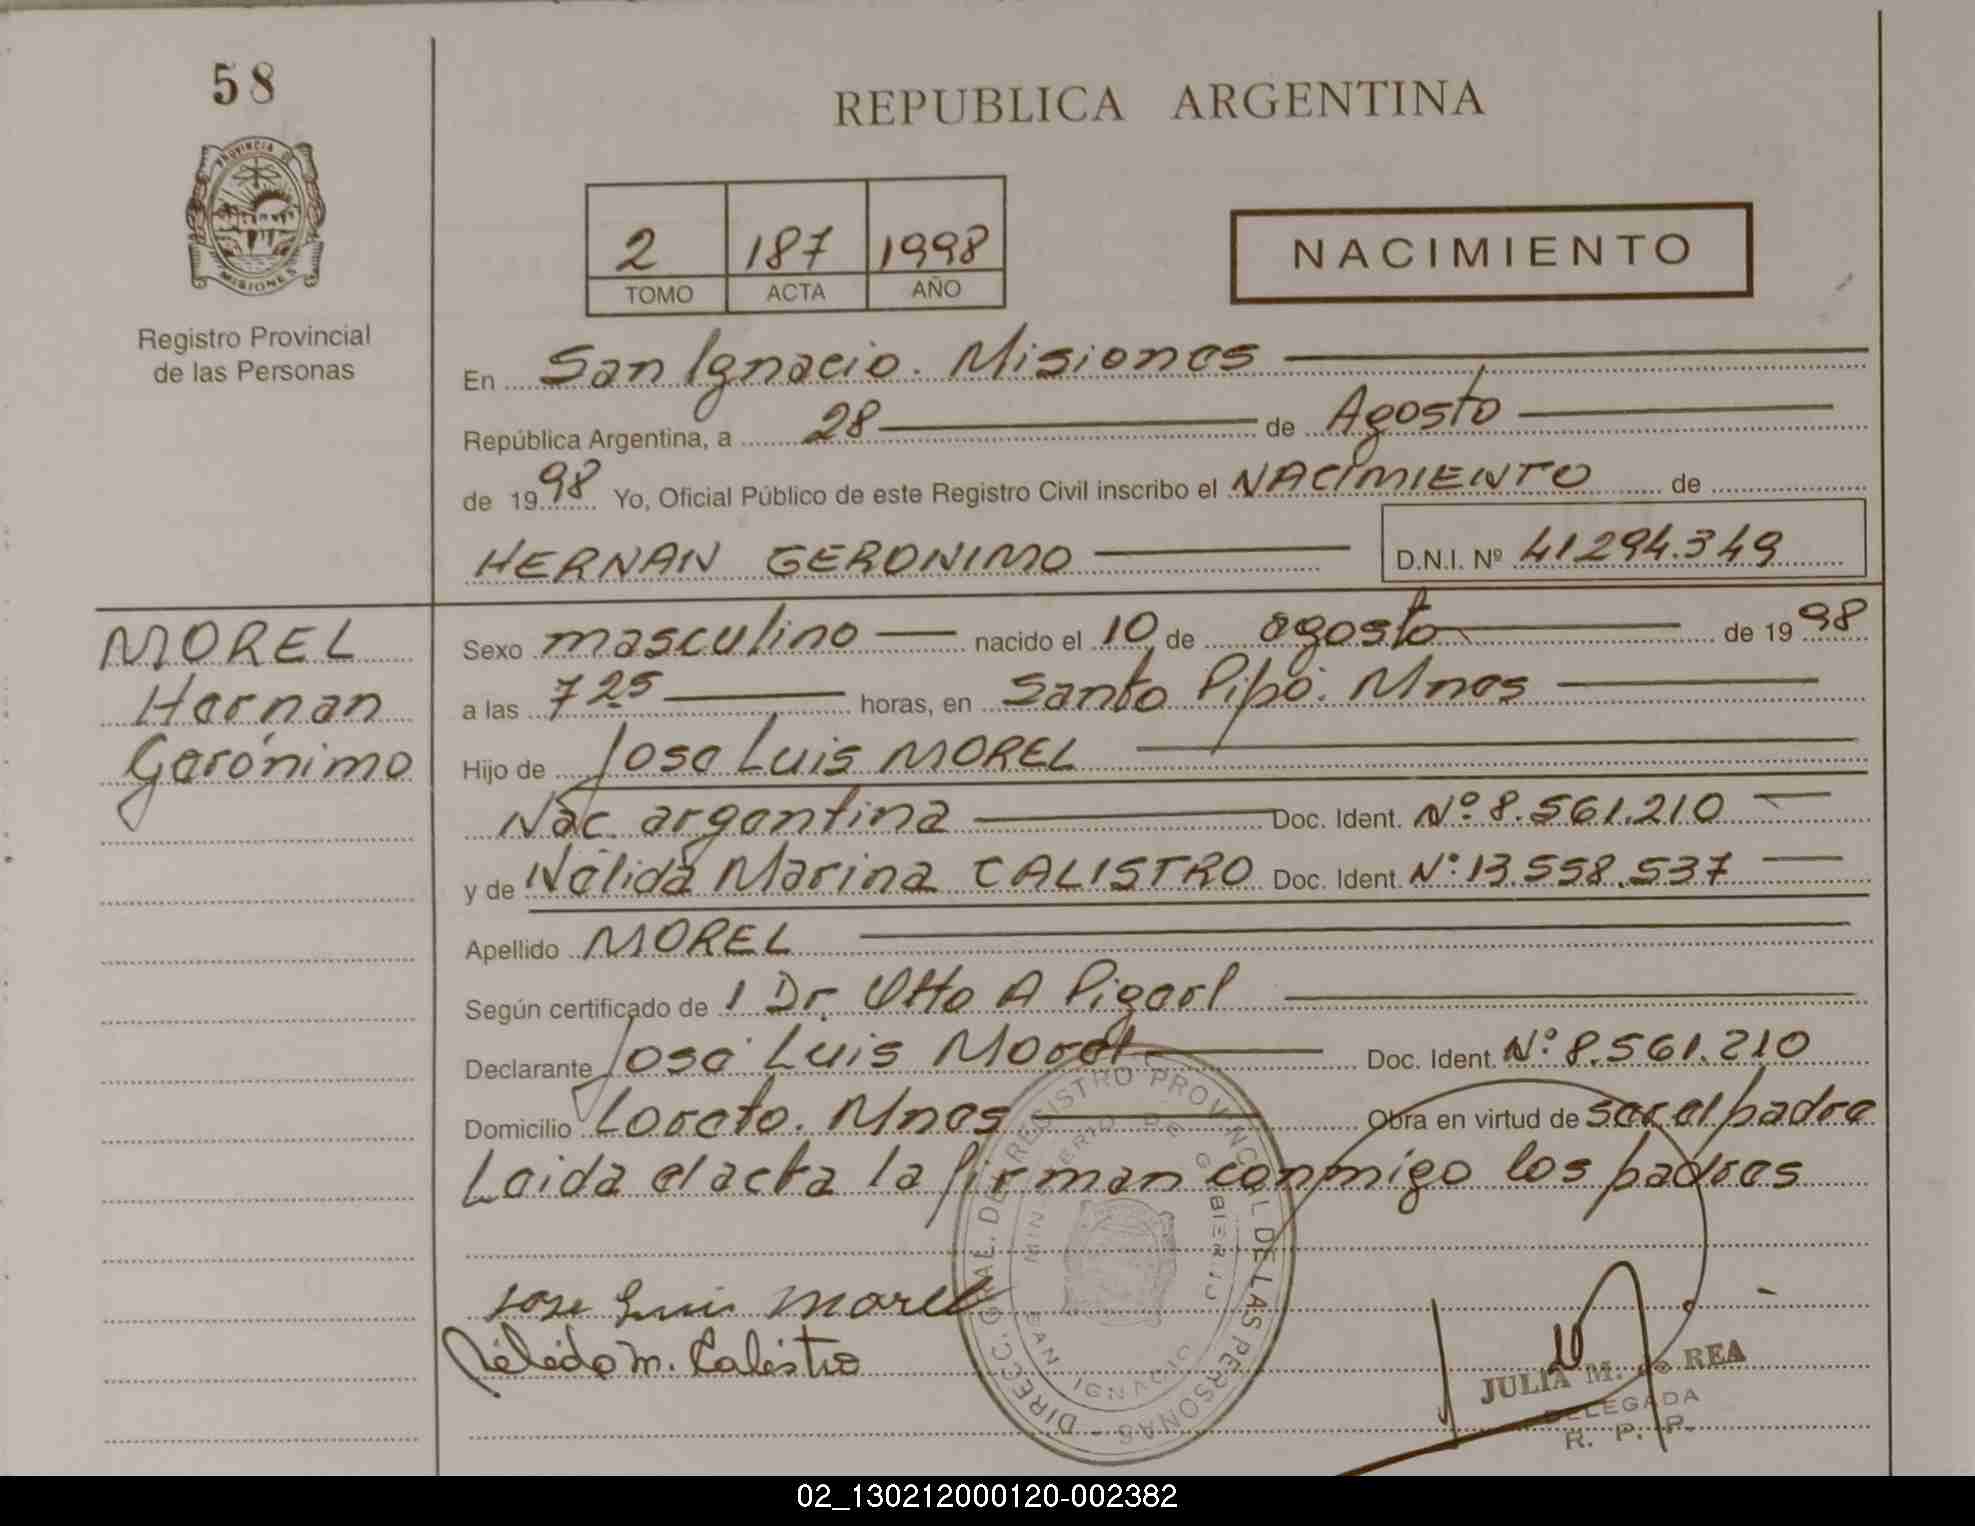 58
REPUBLICA ARGENTINA
PROVINCIA DE MISIONES
Registro Provincial
de las Personas
2 187 1998
TOMO ACTA AÑO
NACIMIENTO
En San Ignacio. Misiones
República Argentina, a 28 de Agosto
de 1998 Yo, Oficial Público de este Registro Civil inscribo el NACIMIENTO de
HERNAN GERONIMO D.N.I. Nº 41294.349
MOREL
Hernan
Gerónimo
Sexo masculino nacido el 10 de agosto de 1998
a las 7 25 horas, en Santo Pipó. Mnes
Hijo de Jose Luis MOREL
Nac. argentina Doc. Ident. Nº 8.561.210
y de Nélida Marina CALISTRO Doc. Ident. Nº 13.558.537
Apellido MOREL
Según certificado de 1 Dr. Otto A
Declarante José Luis Morel Doc. Ident. Nº 8.561.210
Domicilio Loreto. Mnes Obra en virtud de ser el padre
Leida el acta la firman conmigo los padres
Jose Luis Morel
Nélida M. Calistro
DIRECC. GRAL. DEL REGISTRO PROVINCIAL DE LAS PERSONAS
MINISTERIO DE GOBIERNO
SAN IGNACIO
JULIA M. de REA
DELEGADA
R. P. P.
02_130212000120-002382